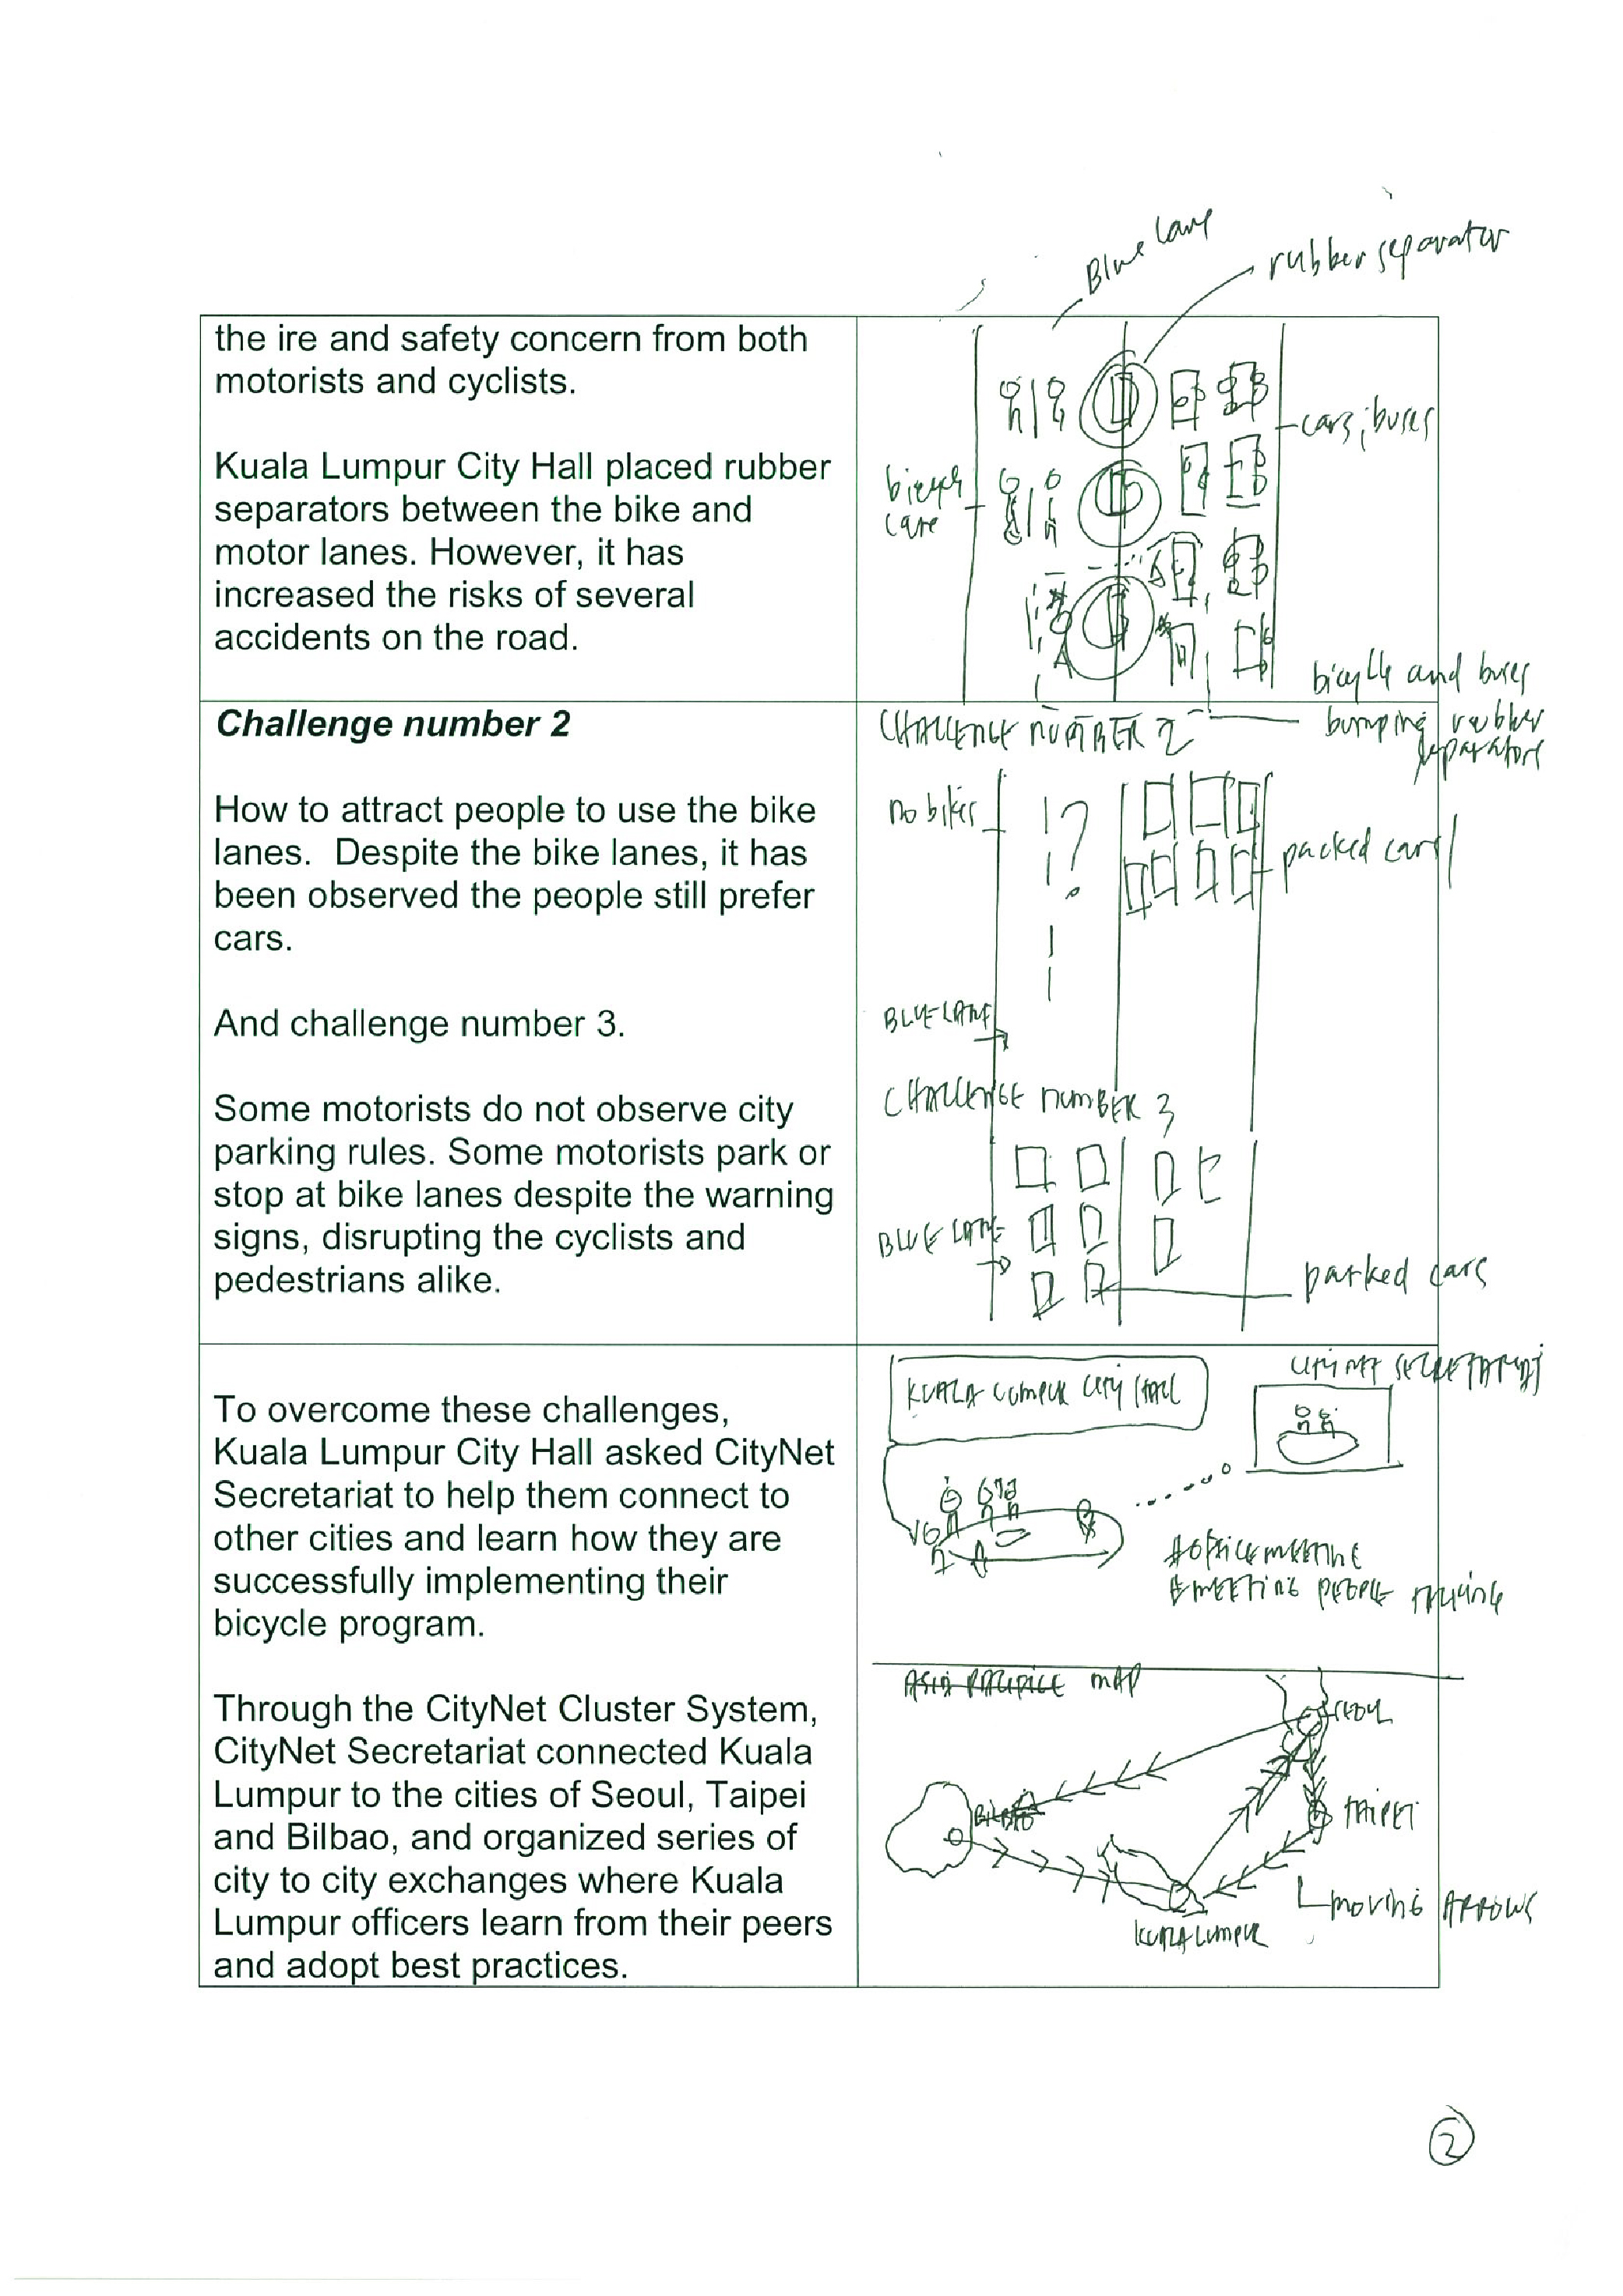 Blue Lane
rubber separator
the ire and safety concern from both
motorists and cyclists.
Kuala Lumpur City Hall placed rubber
separators between the bike and
motor lanes. However, it has
increased the risks of several
accidents on the road.
cars, buses
bicycle and buses
bumping rubber
separators
Challenge number 2
How to attract people to use the bike
lanes.  Despite the bike lanes, it has
been observed the people still prefer
cars.
And challenge number 3.
Some motorists do not observe city
parking rules. Some motorists park or
stop at bike lanes despite the warning
signs, disrupting the cyclists and
pedestrians alike.
CHALLENGE NUMBER 2
no bikes
packed cars
BLUE LANE
CHALLENGE NUMBER 3
BLUE LANE
parked cars
To overcome these challenges,
Kuala Lumpur City Hall asked CityNet
Secretariat to help them connect to
other cities and learn how they are
successfully implementing their
bicycle program.
Through the CityNet Cluster System,
CityNet Secretariat connected Kuala
Lumpur to the cities of Seoul, Taipei
and Bilbao, and organized series of
city to city exchanges where Kuala
Lumpur officers learn from their peers
and adopt best practices.
KUALA LUMPUR CITY HALL
CITYNET SECRETARIAT
OFFICE MEETING
MEETING PEOPLE TALKING
MAP
SEOUL
BILBAO
TAIPEI
MOVING ARROWS
KUALA LUMPUR
2